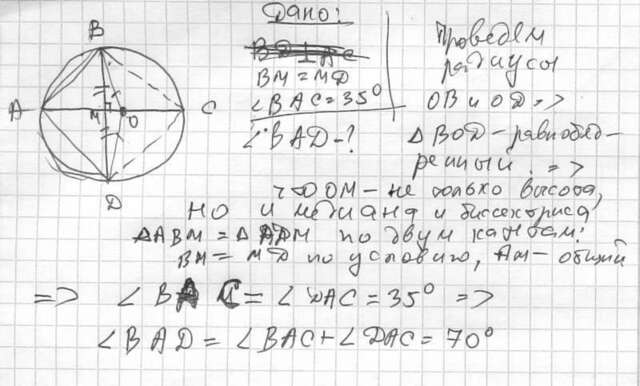 Дано:
BD ⊥ AC
BM = MD
∠BAC = 35°
∠BAD - ?
Проведём
радиусы
OB и OD =>
△BOD - равнобед-
ренный. =>
OM - не только высота,
но и медиана и биссектриса
△ABM = △ADM по двум катетам:
BM = MD по условию, AM - общий
=> ∠BAC = ∠DAC = 35° =>
∠BAD = ∠BAC + ∠DAC = 70°
B
A
M
O
C
D